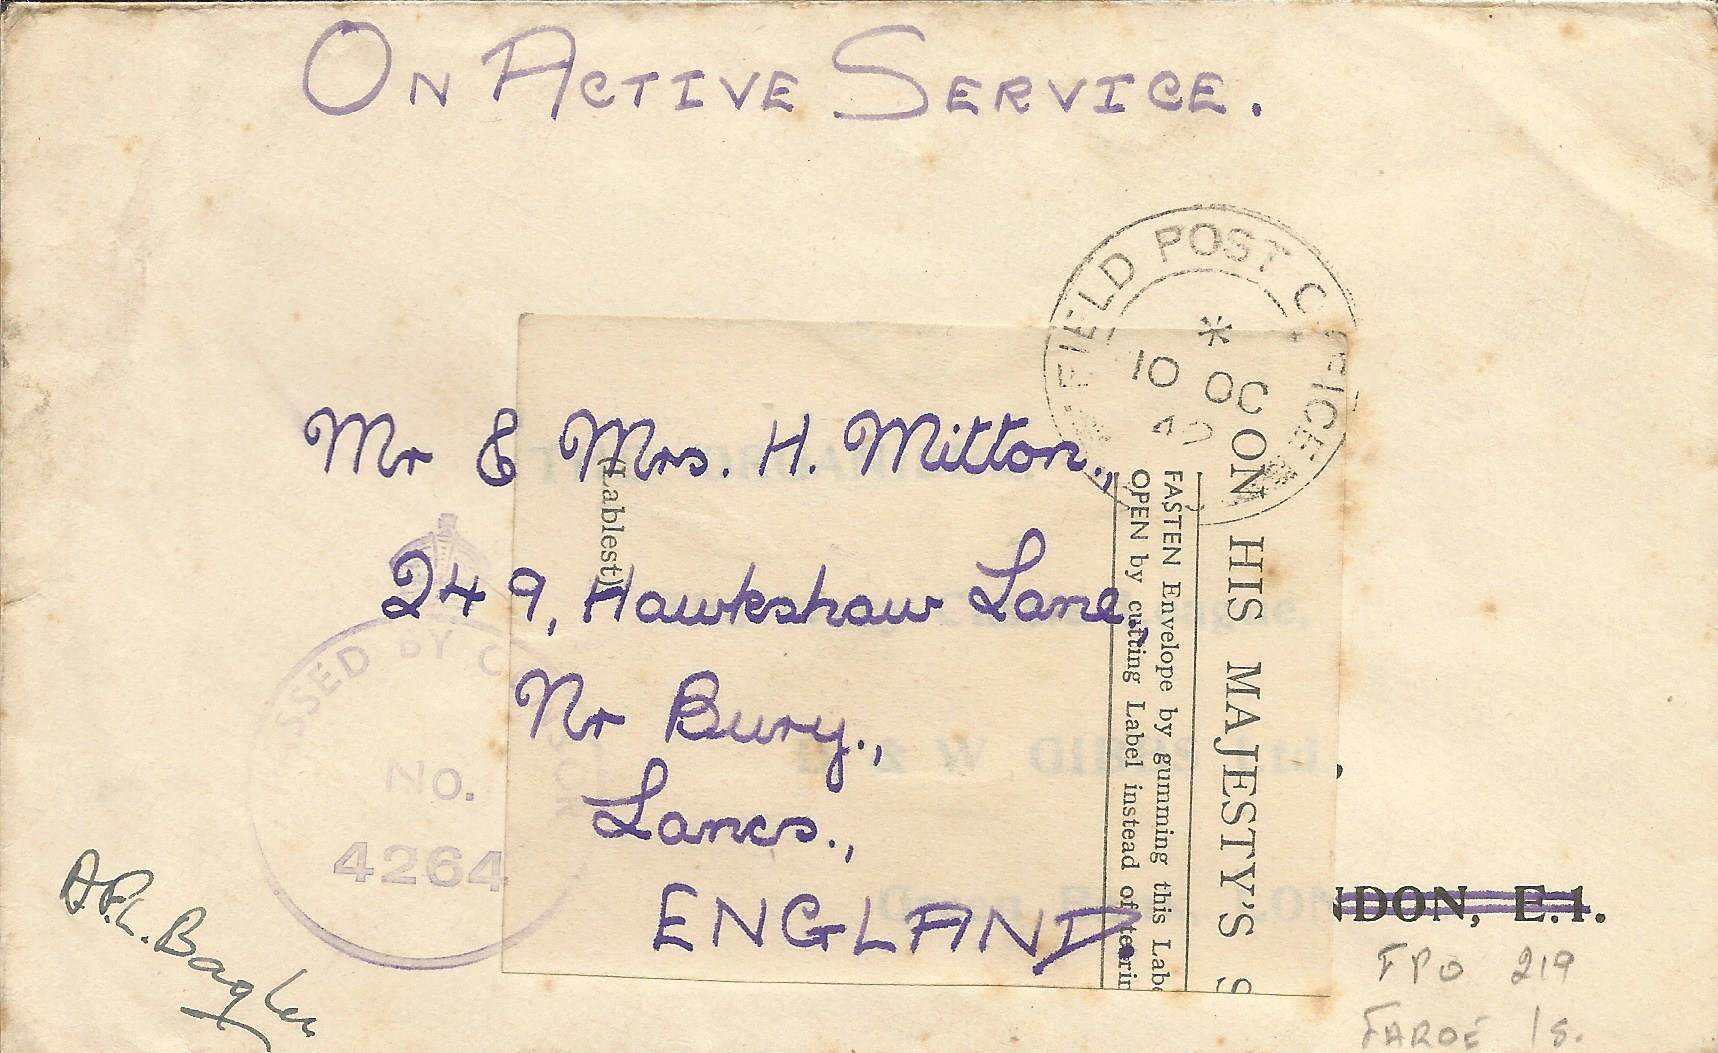 ON ACTIVE SERVICE.
FIELD POST OFFICE
*
10 OC
40
Mr & Mrs. H. Mitton.,
249, Hawkshaw Lane,
Nr Bury.,
Lancs.,
ENGLAND.
(Lablest)
ON HIS MAJESTY'S S
FASTEN Envelope by gumming this Labe
OPEN by cutting Label instead of tearin
& W
LON
NDON, E.1.
PASSED BY CENSOR
No.
4264
FPO 219
FAROE Is.